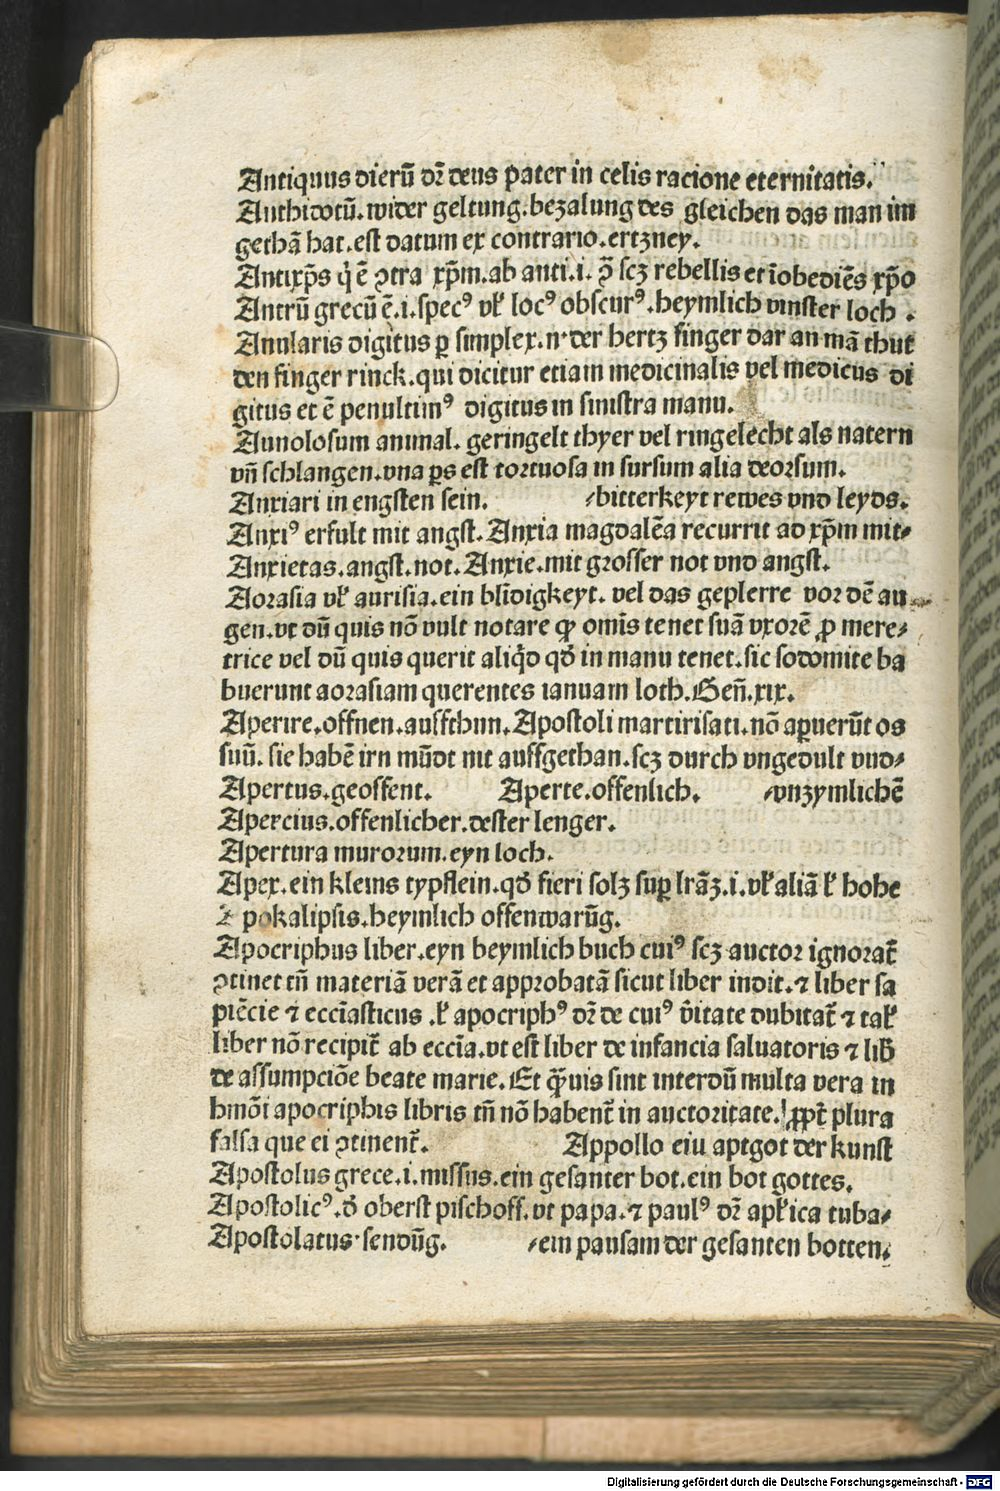 Antiquus dierū dr̄ deus pater in celis racione eternitatis.
Anthidotū. wider geltung. bezalung des gleichen das man im
gethā hat. est datum ex contrario. ertzney.
Antixp̄s q̇ ē ꝯtra xp̄m. ab anti .i. ꝯ̄ scꝫ rebellis et īobediēs xp̄o
Antrū grecū ē .i. specꝰ vł locꝰ obscurꝰ. heymlich vinster loch .
Anularis digitus ꝑ simplex. n. der hertz finger dar an mā thut
den finger rinck. qui dicitur etiam medicinalis vel medicus di
gitus et ē penultimꝰ digitus in sinistra manu.
Anuolosum animal. geringelt thyer vel ringelecht als natern
vn̄ schlangen. vna ꝑs est tortuosa in sursum alia deorsum.
Anxiari in engsten sein. ⸗bitterkeyt rewes vnd leyds.
Anxiꝰ erfult mit angst. Anxia magdalēa recurrit ad xp̄m mit⸗
Anxietas. angst. not. Anxie. mit grosser not vnd angst.
Aorasia vł aurisia. ein blīdigkeyt. vel das geplerre vor dē au
gen. vt dū quis nō vult notare ꝙ omīs tenet suā vxorē ꝓ mere⸗
trice vel dū quis querit aliq̇d qđ in manu tenet. sic sodomite ha
buerunt aorasiam querentes ianuam loth. Gen̄. xix.
Aperire. offnen. auffthun. Apostoli martirisati. nō aꝑuerūt os
suū. sie habē irn mūdt nit auffgethan. scꝫ durch vngedult vnd⸗
Apertus. geoffent. Aperte. offenlich. ⸗vnzymlichē
Apercius. offenlicher. dester lenger.
Apertura murorum. eyn loch.
Apex. ein kleins typflein. qđ fieri solꝫ suꝑ lr̄aꝫ .i. vł aliā ł hohe
A pokalipsis. heymlich offenwarūg.
Apocriphus liber. eyn heymlich buch cuiꝰ scꝫ auctor ignorat̄
ꝯtinet tn̄ materiā verā et approbatā sicut liber iudit. ⁊ liber sa
piēcie ⁊ eccīasticus . ł apocriphꝰ dr̄ de cuiꝰ v̄itate dubitat̄ ⁊ tał
liber nō recipit̄ ab eccīa. vt est liber de infancia saluatoris ⁊ lib̄
de assumpciōe beate marie. Et q̄uis sint interdū multa vera in
hmōi apocriphis libris tn̄ nō habent̄ in auctoritate. ꝓpt̄ plura
falsa que ei ꝯtinent̄. Appollo eiu aptgot der kunst
Apostolus grece .i. missus. ein gesanter bot. ein bot gottes.
Apostolicꝰ. đ oberst pischoff. vt papa. ⁊ paulꝰ dr̄ apłica tuba⸗
Apostolatus. sendūg. ⸗ein pausam der gesanten botten.
Digitalisierung gefördert durch die Deutsche Forschungsgemeinschaft - DFG